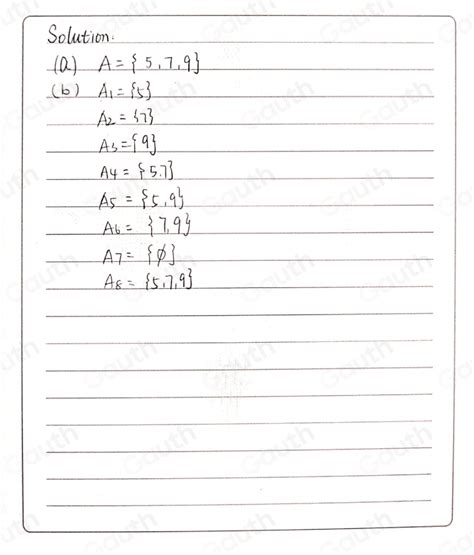 Solution:
(a) A = { 5, 7, 9}
(b) A1 = {5}
A2 = {7}
A3 = {9}
A4 = {5.7}
A5 = {5, 9}
A6 = {7, 9}
A7 = {∅}
A8 = {5, 7, 9}
Gauth